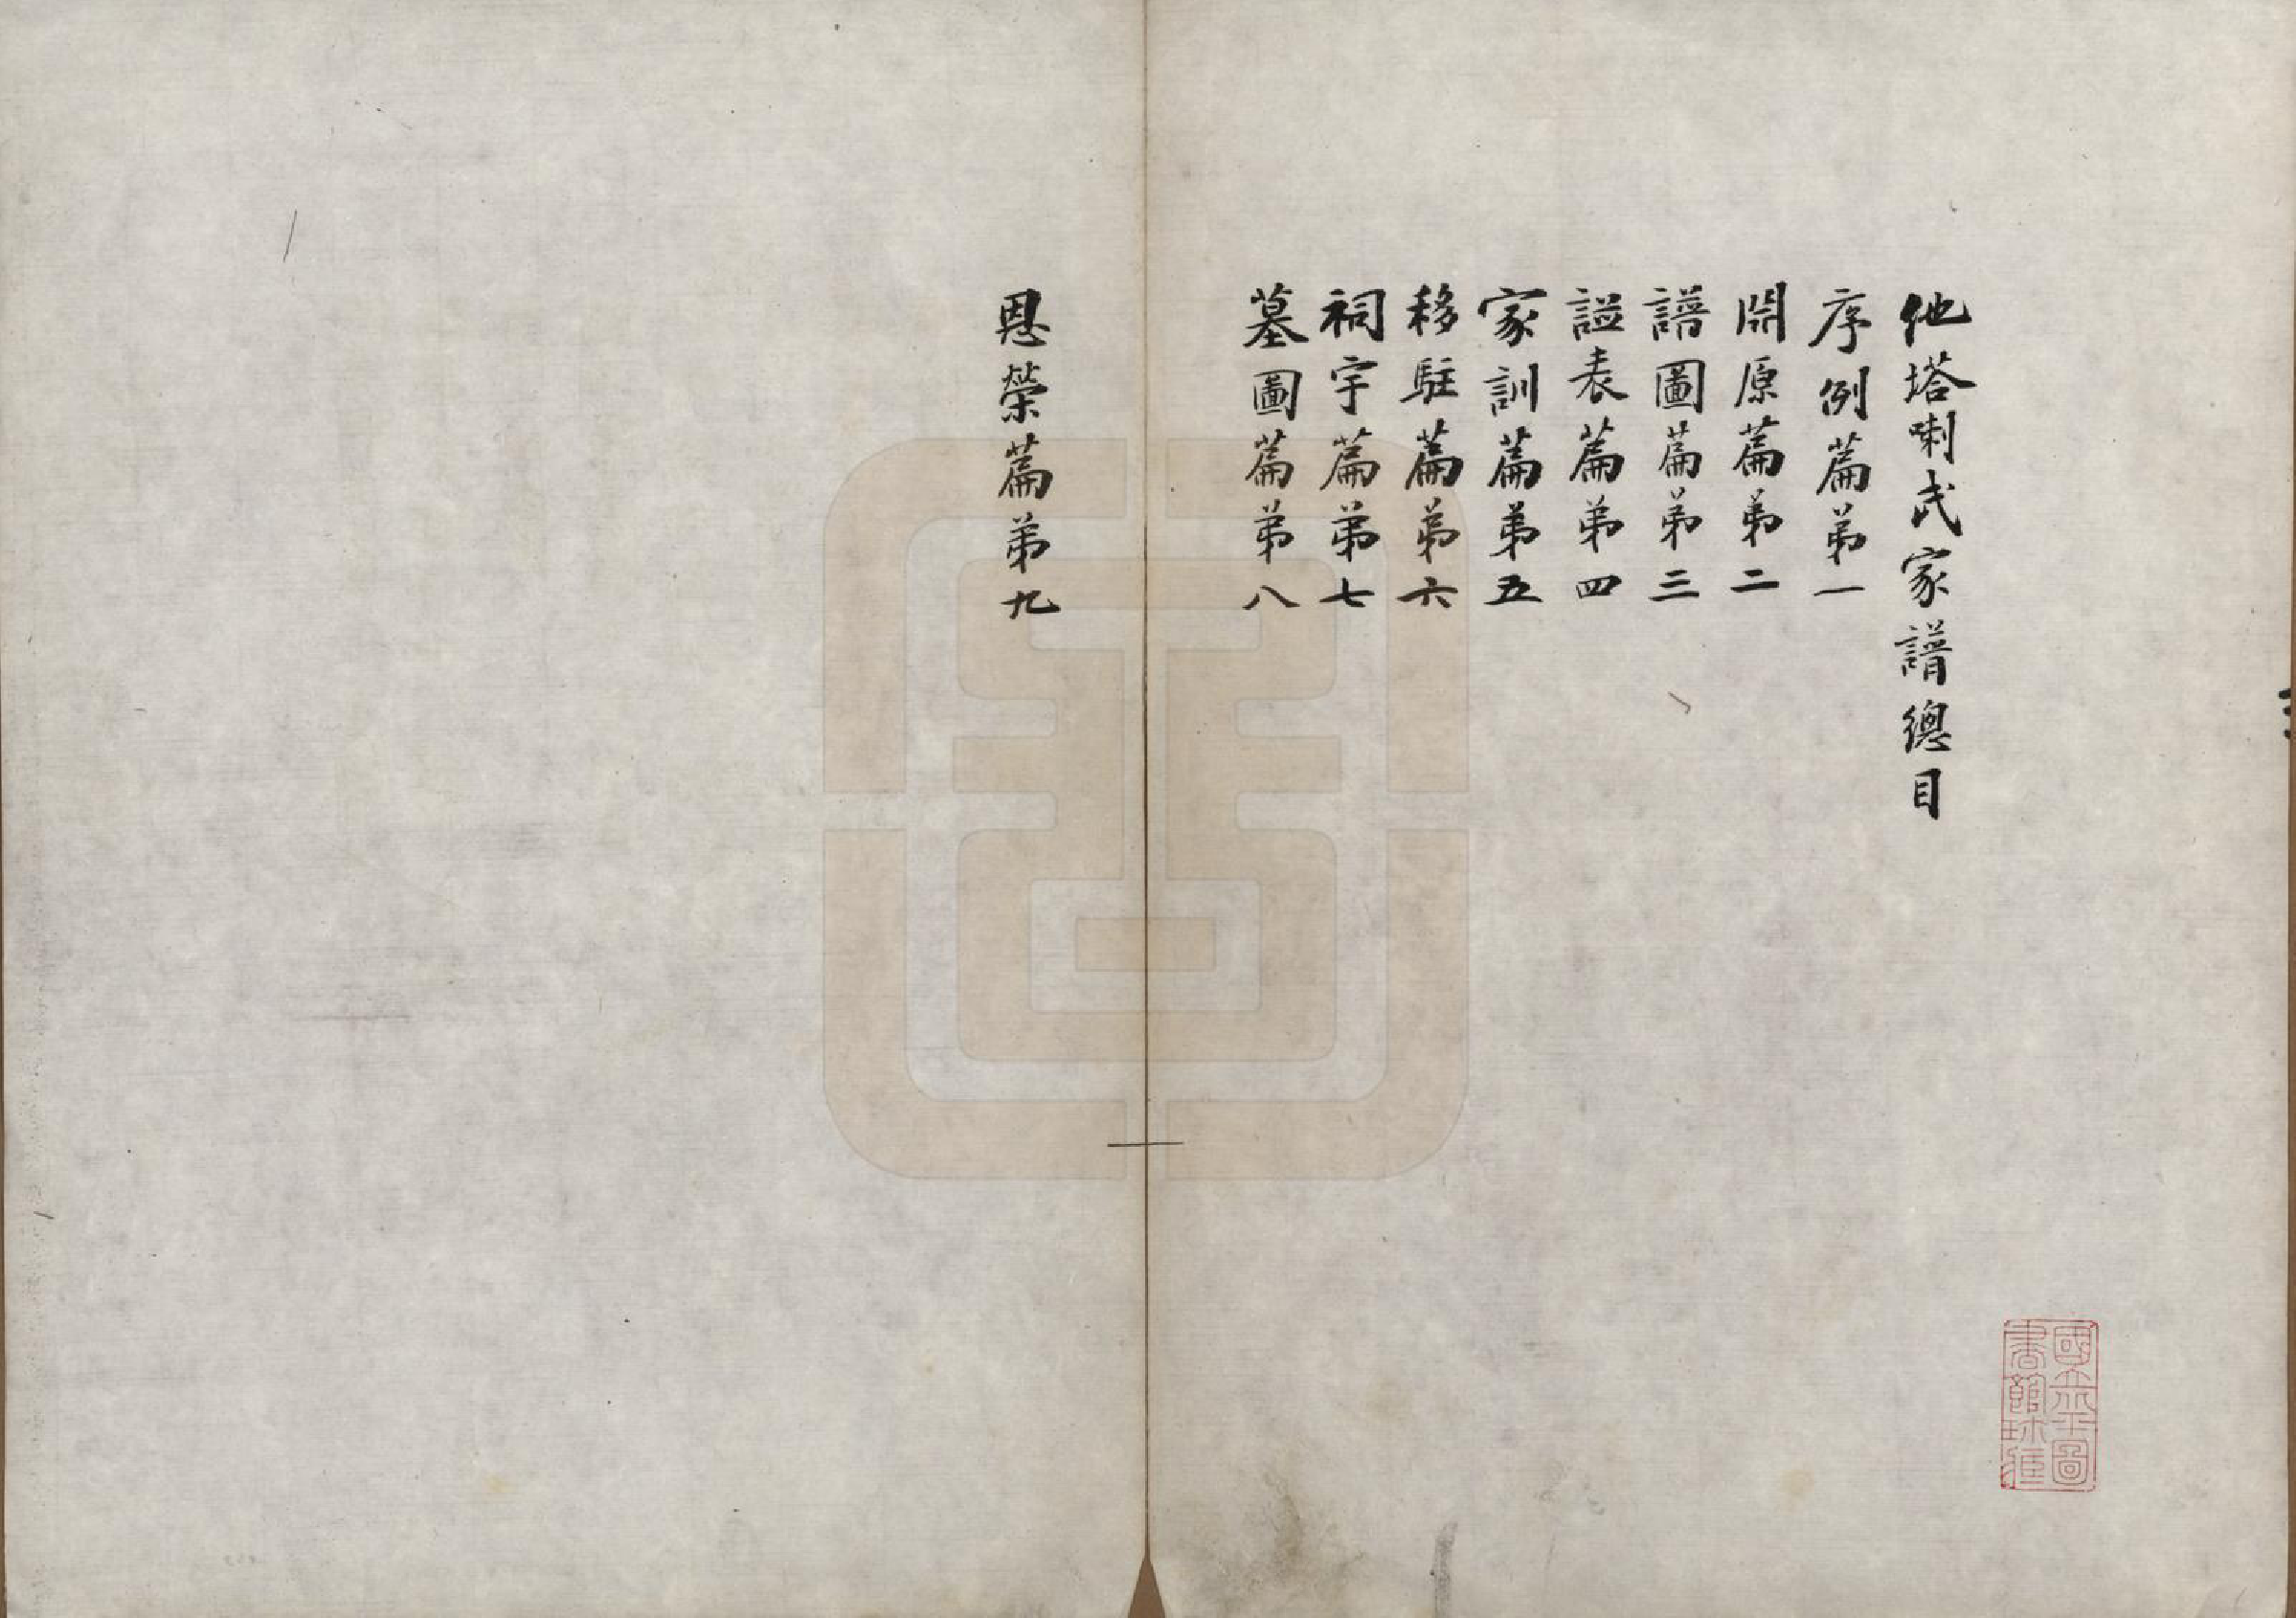 他塔喇氏家譜總目
序例篇弟一
開原篇弟二
譜圖篇弟三
諡表篇弟四
家訓篇弟五
移駐篇弟六
祠宇篇弟七
墓圖篇弟八
恩榮篇弟九
國立北平圖
書館珍藏